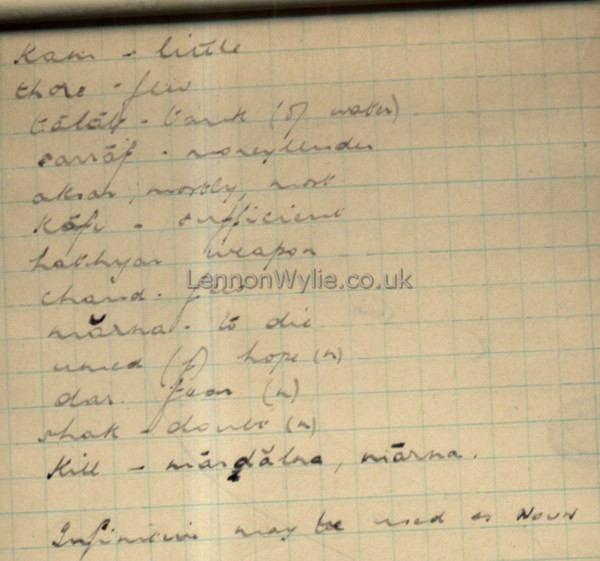 Kam - little
thore - few
tālāb - tank (of water)
sarrāf - moneylender
aksar, mostly, most
Kāfi - sufficient
hathyar weapon
LennonWylie.co.uk
chand - few
mărna - to die
umed (f) hope (n)
dar. fear (n)
shak - doubt (n)
Kill - mārdălna, mārna.
Infinitive may be used as NOUN